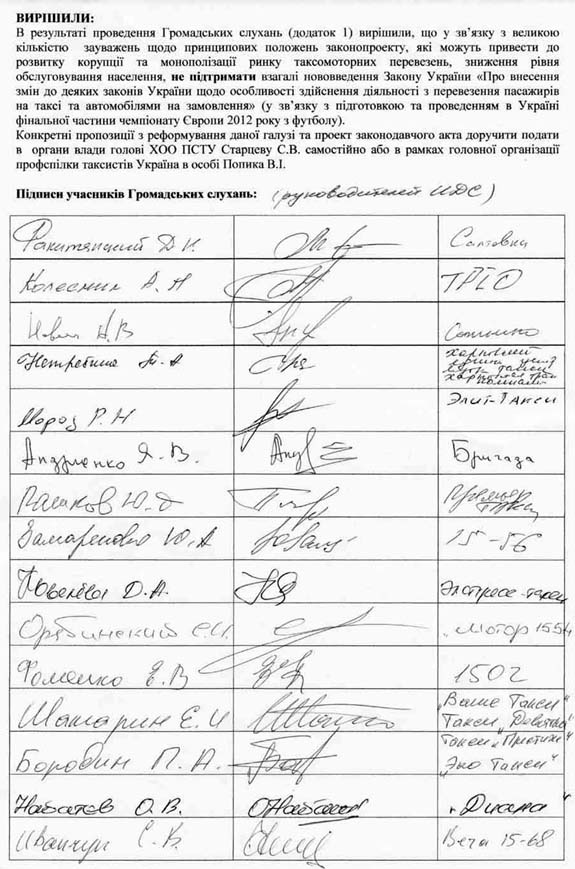 ВИРІШИЛИ:
В результаті проведення Громадських слухань (додаток 1) вирішили, що у зв’язку з великою
кількістю зауважень щодо принципових положень законопроекту, які можуть привести до
розвитку корупції та монополізації ринку таксомоторних перевезень, зниження рівня
обслуговування населення, не підтримати взагалі нововведення Закону України «Про внесення
змін до деяких законів України щодо особливості здійснення діяльності з перевезення пасажирів
на таксі та автомобілями на замовлення» (у зв’язку з підготовкою та проведенням в Україні
фінальної частини чемпіонату Європи 2012 року з футболу).
Конкретні пропозиції з реформування даної галузі та проект законодавчого акта доручити подати
в органи влади голові ХОО ПСТУ Старцеву С.В. самостійно або в рамках головної організації
профспілки таксистів Україна в особі Попика В.І.
Підписи учасників Громадських слухань: (руководителей ИДС)
Ракитянский Д. Салтовка
Колесник А. Н ТРІО
Н.В
Нетребина Т.А
Мороз Р. Н Элит-Такси
Андриенко Я. В. Бригада
Пашков Ю.
Ю.А 15-56
Д.А. Экспресс-такси
Орябинский С.И. "Мотор 1554
Фоменко Е.В 1502
Шамарин Е.И "Ваше Такси"
Такси
Такси
Бородин П. А. "Эко Такси"
Набатов О.В. ОНабатов "Диана"
Иванчук С. В. Веча 15-68